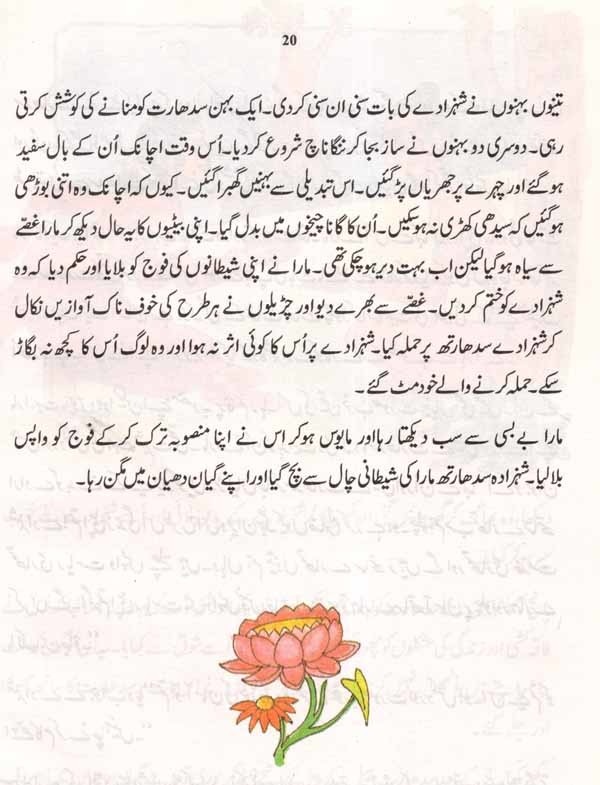 20
تینوں بہنوں نے شہزادے کی بات سنی ان سنی کر دی۔ ایک بہن سدھارت کو منانے کی کوشش کرتی
رہی۔ دوسری دو بہنوں نے ساز بجا کر ننگا ناچ شروع کر دیا۔ اُس وقت اچانک اُن کے بال سفید
ہو گئے اور چہرے پر جھریاں پڑ گئیں۔ اس تبدیلی سے بہنیں گھبرا گئیں۔ کیوں کہ اچانک وہ اتنی بوڑھی
ہو گئیں کہ سیدھی کھڑی نہ ہو سکیں۔ اُن کا گانا چیخوں میں بدل گیا۔ اپنی بیٹیوں کا یہ حال دیکھ کر مارا غصّے
سے سیاہ ہو گیا لیکن اب بہت دیر ہو چکی تھی۔ مارا نے اپنی شیطانوں کی فوج کو بلایا اور حکم دیا کہ وہ
شہزادے کو ختم کر دیں۔ غصّے سے بھرے دیو اور چڑیلوں نے ہر طرح کی خوف ناک آوازیں نکال
کر شہزادے سدھارتھ پر حملہ کیا۔ شہزادے پر اُس کا کوئی اثر نہ ہوا اور وہ لوگ اُس کا کچھ نہ بگاڑ
سکے۔ حملہ کرنے والے خود مٹ گئے۔
مارا بے بسی سے سب دیکھتا رہا اور مایوس ہو کر اس نے اپنا منصوبہ ترک کر کے فوج کو واپس
بلا لیا۔ شہزادہ سدھارتھ مارا کی شیطانی چال سے بچ گیا اور اپنے گیان دھیان میں مگن رہا۔